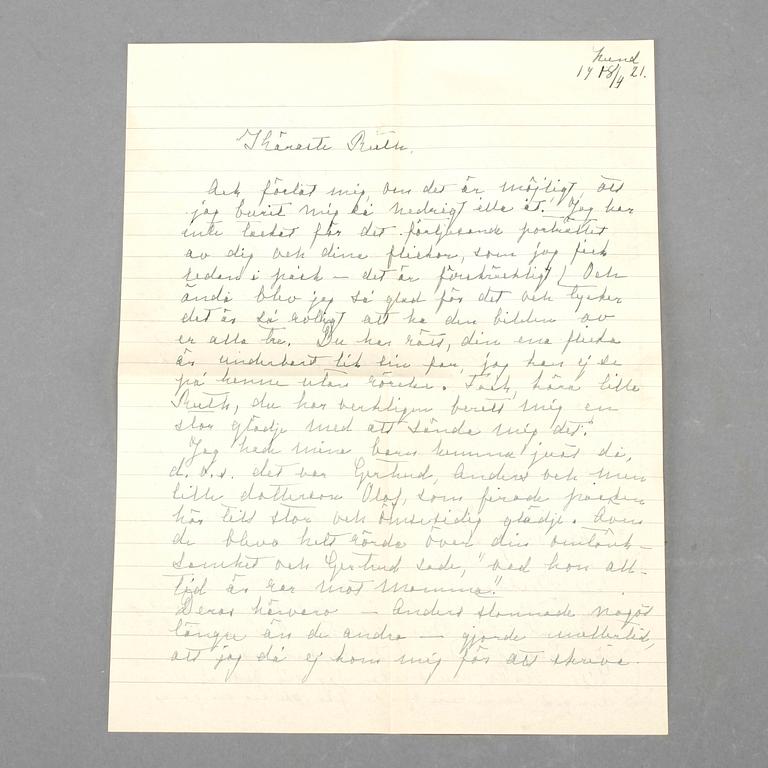 Lund
19 18/4 21.
Käraste Ruth.
Ack förlåt mig, om det är möjligt, att
jag burit mig så nedrigt illa åt! Jag har
inte tackat för det förtjusande porträttet
av dig och dina flickor, som jag fick
redan i påsk – det är förskräckligt! Och
ändå blev jag så glad för det och tycker
det är så roligt att ha den bilden av
er alla tre. Du har rätt, din ena flicka
är underbart lik sin far, jag kan ej se
på henne utan rörelse. Tack, kära lilla
Ruth, du har verkligen berett mig en
stor glädje med att sända mig det."
Jag hade mina barn hemma just då,
d. v. s. det var Gertrud, Anders och min
lille dotterson Olof, som firade påsken
här till stor och ömsesidig glädje. Även
de blevo helt rörda över din omtänk-
samhet och Gertrud sade, "vad hon all-
tid är rar mot Mamma."
Deras härvaro – Anders stannade något
längre än de andra – gjorde emellertid,
att jag då ej kom mig för att skriva.